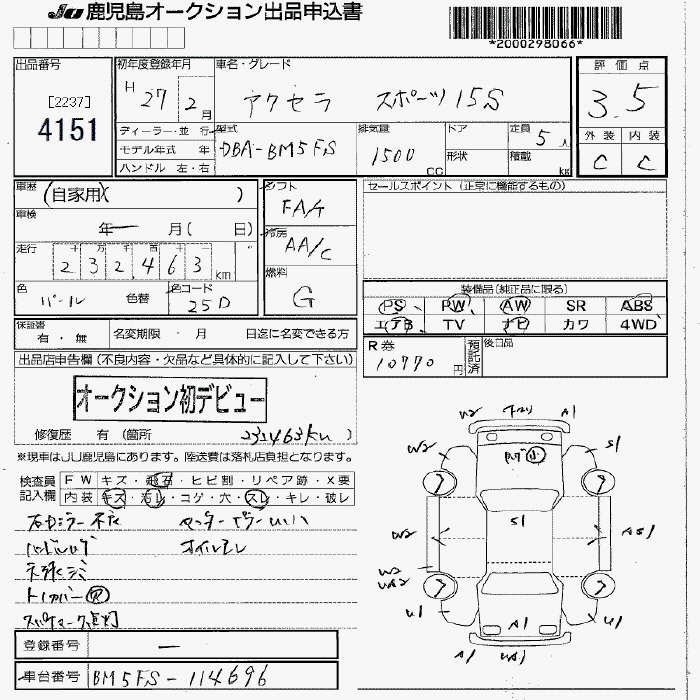 JU 鹿児島オークション出品申込書
*2000298066*
出品番号
[2237]
4151
初年度登録年月
H 27 2月
車名・グレード
アクセラ スポーツ15S
評価点
3.5
ディーラー・並行
モデル年式 年
ハンドル 左・右
型式
DBA-BM5FS
排気量
1500 CC
ドア
形状
定員 5人
積載 kg
外装 内装
C C
車歴
(自家用)( )
車検
年 月( 日)
走行
十 万 千 百 十
232,463 km
色
パール
色替
色コード
25D
シフト
FAT
冷房
AA/C
燃料
G
セールスポイント(正常に機能するもの)
装備品(純正品に限る)
PS PW AW SR ABS
エアB TV ナビ カワ 4WD
保証書
有・無
名変期限 ・ 月 日迄に名変できる方
R券
10770円
預託済
後日品
出品店申告欄(不良内容・欠品など具体的に記入して下さい)
オークション初デビュー
修復歴 有(箇所 )
232463km
※現車はJU鹿児島にあります。陸送費は落札店負担となります。
検査員記入欄
FW キズ・飛石・ヒビ割・リペア跡・X要
内装 キズ・汚レ・コゲ・穴・スレ・キレ・破レ
オイルモレ
天張シミ
登録番号
車台番号 BM5FS-114696
W2 A1
W2 S1
S1
W2 AS1
W2
U1 U1
A1
A1